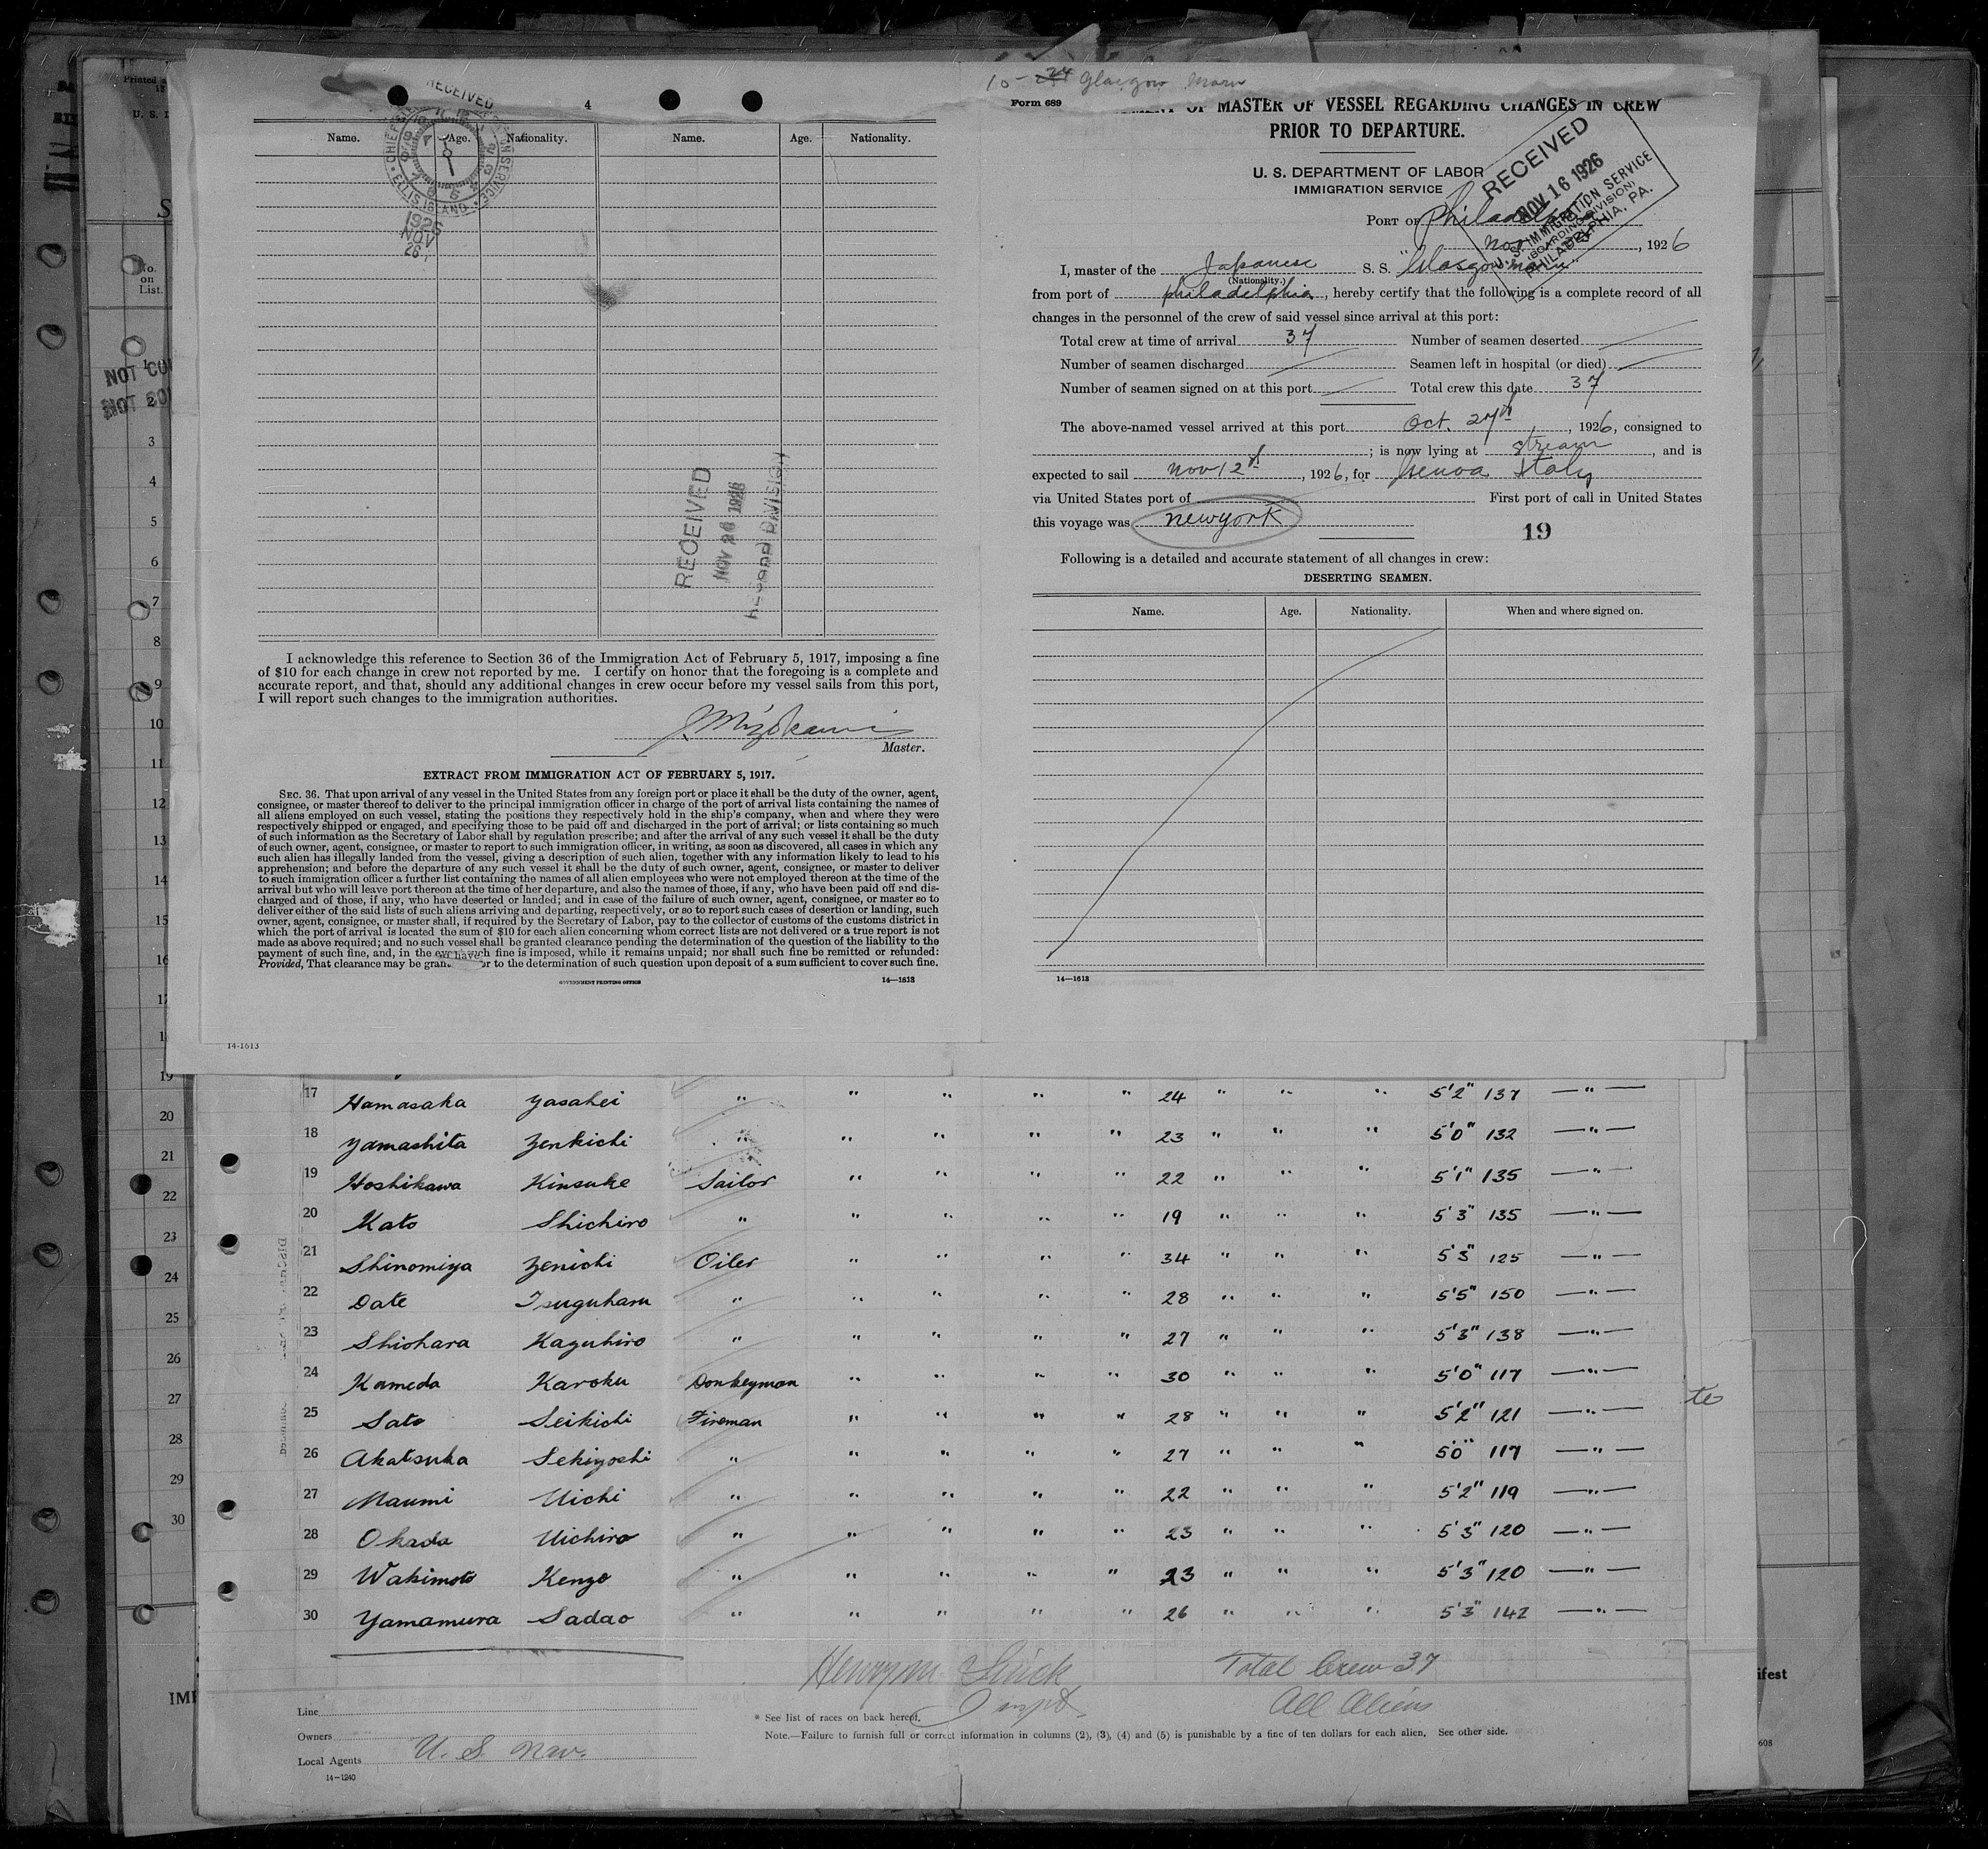 10-24 Glasgow Maru
RECEIVED
ELLIS ISLAND
1926
NOV
26
4
Name. Age. Nationality. Name. Age. Nationality.
RECEIVED
NOV 26 1926
RECORD DIVISION
I acknowledge this reference to Section 36 of the Immigration Act of February 5, 1917, imposing a fine
of $10 for each change in crew not reported by me. I certify on honor that the foregoing is a complete and
accurate report, and that, should any additional changes in crew occur before my vessel sails from this port,
I will report such changes to the immigration authorities.
J. Mizokami
Master.
EXTRACT FROM IMMIGRATION ACT OF FEBRUARY 5, 1917.
SEC. 36. That upon arrival of any vessel in the United States from any foreign port or place it shall be the duty of the owner, agent,
consignee, or master thereof to deliver to the principal immigration officer in charge of the port of arrival lists containing the names of
all aliens employed on such vessel, stating the positions they respectively hold in the ship's company, when and where they were
respectively shipped or engaged, and specifying those to be paid off and discharged in the port of arrival; or lists containing so much
of such information as the Secretary of Labor shall by regulation prescribe; and after the arrival of any such vessel it shall be the duty
of such owner, agent, consignee, or master to report to such immigration officer, in writing, as soon as discovered, all cases in which any
such alien has illegally landed from the vessel, giving a description of such alien, together with any information likely to lead to his
apprehension; and before the departure of any such vessel it shall be the duty of such owner, agent, consignee, or master to deliver
to such immigration officer a further list containing the names of all alien employees who were not employed thereon at the time of the
arrival but who will leave port thereon at the time of her departure, and also the names of those, if any, who have been paid off and dis-
charged and of those, if any, who have deserted or landed; and in case of the failure of such owner, agent, consignee, or master so to
deliver either of the said lists of such aliens arriving and departing, respectively, or so to report such cases of desertion or landing, such
owner, agent, consignee, or master shall, if required by the Secretary of Labor, pay to the collector of customs of the customs district in
which the port of arrival is located the sum of $10 for each alien concerning whom correct lists are not delivered or a true report is not
made as above required; and no such vessel shall be granted clearance pending the determination of the question of the liability to the
payment of such fine, and, in the such fine is imposed, while it remains unpaid; nor shall such fine be remitted or refunded:
Provided, That clearance may be gran or to the determination of such question upon deposit of a sum sufficient to cover such fine.
GOVERNMENT PRINTING OFFICE 14—1613
Form 689
OF MASTER OF VESSEL REGARDING CHANGES IN CREW
PRIOR TO DEPARTURE.
U. S. DEPARTMENT OF LABOR
IMMIGRATION SERVICE
RECEIVED
NOV 16 1926
U. S. IMMIGRATION SERVICE
(BOARDING DIVISION)
PHILADELPHIA, PA.
PORT OF Philadelphia
Nov , 1926
I, master of the Japanese S. S. "Glasgow Maru"
(Nationality.)
from port of Philadelphia, hereby certify that the following is a complete record of all
changes in the personnel of the crew of said vessel since arrival at this port:
Total crew at time of arrival 37 Number of seamen deserted
Number of seamen discharged Seamen left in hospital (or died)
Number of seamen signed on at this port Total crew this date 37
The above-named vessel arrived at this port Oct. 27th, 1926, consigned to
; is now lying at stream, and is
expected to sail Nov 12th, 1926, for Genoa Italy
via United States port of First port of call in United States
this voyage was New York
19
Following is a detailed and accurate statement of all changes in crew:
DESERTING SEAMEN.
Name. Age. Nationality. When and where signed on.
14—1613
14-1613
17 Hamasaka Yasahei " " " " " 24 " " " 5'2" 137 — " —
18 Yamashita Zenkichi " " " " " 23 " " " 5'0" 132 — " —
19 Hoshikawa Kinsuke Sailor " " " " 22 " " " 5'1" 135 — " —
20 Kato Shichiro " " " " " 19 " " " 5'3" 135 — " —
21 Shinomiya Zenichi Oiler " " " " 34 " " " 5'3" 125 — " —
22 Date Tsuguharu " " " " " 28 " " " 5'5" 150 — " —
23 Shiohara Kazuhiro " " " " " 27 " " " 5'3" 138 — " —
24 Kameda Karoku Donkeyman " " " " 30 " " " 5'0" 117 — " —
25 Sato Seikichi Fireman " " " " 28 " " " 5'2" 121 — " —
26 Akatsuka Sekiyoshi " " " " " 27 " " " 5'0" 117 — " —
27 Maumi Uichi " " " " " 22 " " " 5'2" 119 — " —
28 Okada Uichiro " " " " " 23 " " " 5'3" 120 — " —
29 Wakimoto Kenzo " " " " " 23 " " " 5'3" 120 — " —
30 Yamamura Sadao " " " " " 26 " " " 5'3" 142 — " —
Total Crew 37
All Aliens
Line
Owners
Local Agents U. S. Nav.
14—1240
* See list of races on back hereof.
Note.—Failure to furnish full or correct information in columns (2), (3), (4) and (5) is punishable by a fine of ten dollars for each alien. See other side.
No.
on
List.
NOT
1
2
3
4
5
6
7
8
9
10
11
12
13
14
15
16
19
20
21
22
23
24
25
26
27
28
29
30
te